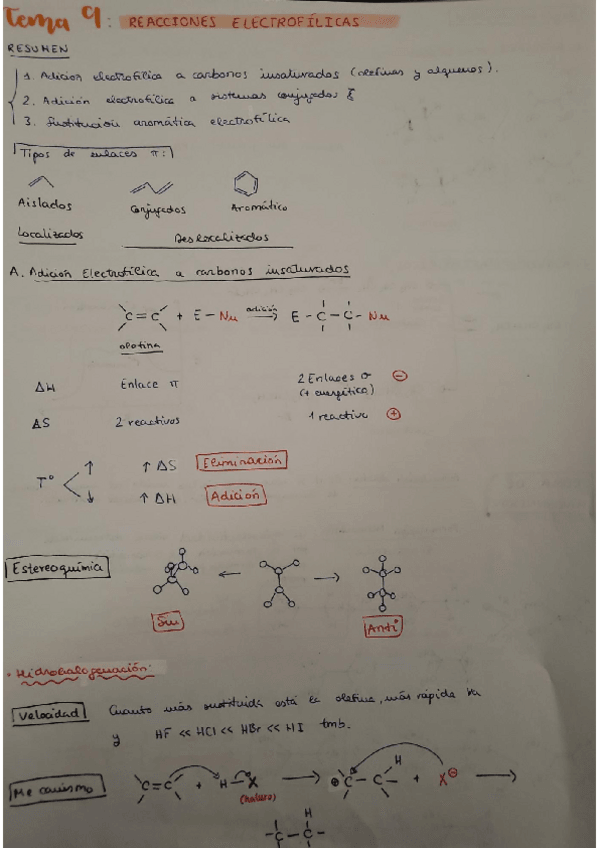 Tema 9: REACCIONES ELECTROFÍLICAS
RESUMEN
1. Adición electrofílica a carbonos insaturados (olefinas y alquenos).
2. Adición electrofílica a sistemas conjugados
3. Sustitución aromática electrofílica
Tipos de enlaces π:
Aislados Conjugados Aromático
Localizados Deslocalizados
A. Adición Electrofílica a carbonos insaturados
C=C + E-Nu adición E-C-C-Nu
ΔH Enlace π 2 Enlaces σ ⊖
(+ energética)
ΔS 2 reactivos 1 reactivo ⊕
↑ ↑ ΔS Eliminación
Tº
↓ ↑ ΔH Adición
Estereoquímica
Sin Anti
· Hidrohalogenación:
Velocidad Cuanto más sustituida está la olefina, más rápida va
y HF << HCl << HBr << HI tmb.
Mecanismo C=C + H-X ⊕C-C H + X⊖
(haluro)
H
-C-C-